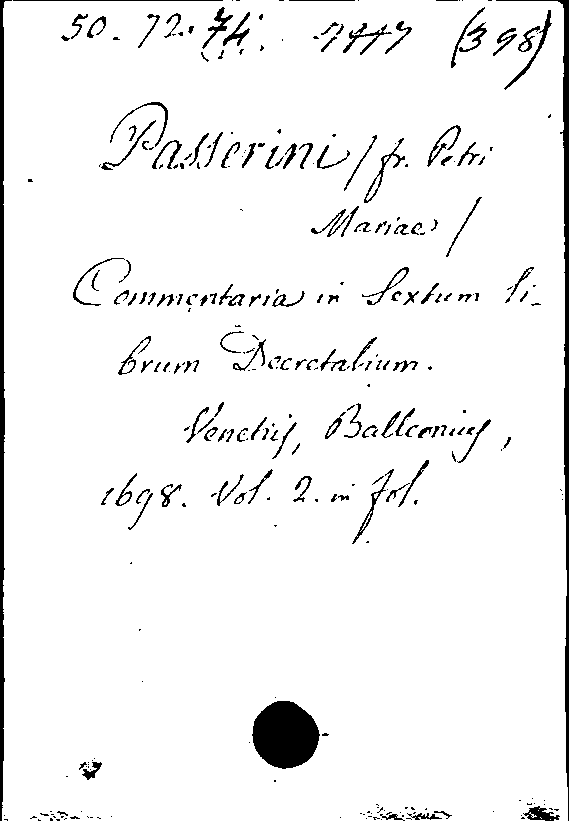 50. 72. 74. 7447 (398)
Passerini / fr. Petri
Mariae /
Commentaria in Sextum li-
brum Decretalium.
Venetiis, Balleonius,
1698. Vol. 2. in fol.